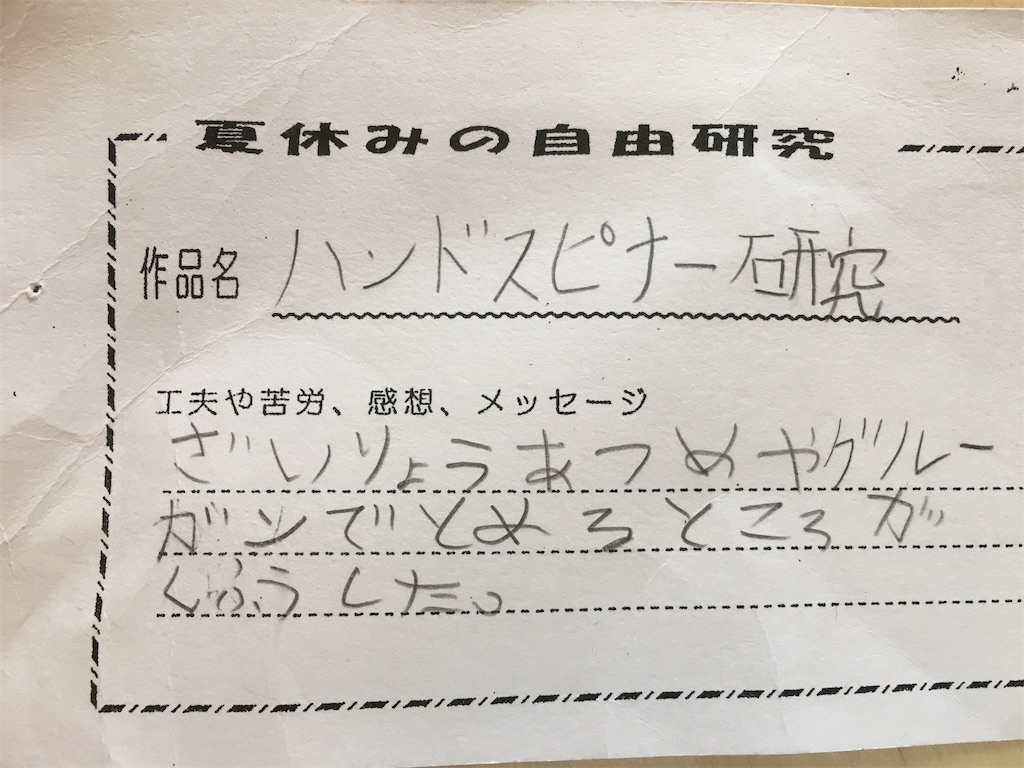 夏休みの自由研究
作品名 ハンドスピナー研究
工夫や苦労、感想、メッセージ
ざいりょうあつめやグルー
ガンでとめるところが
くふうした。